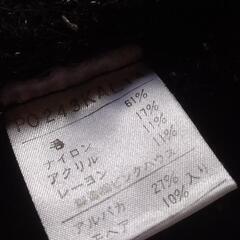 PO243KAL
毛 61%
ナイロン 17%
アクリル 11%
レーヨン 11%
ピンクハウス
アルパカ 27%
モヘア 10% 入り